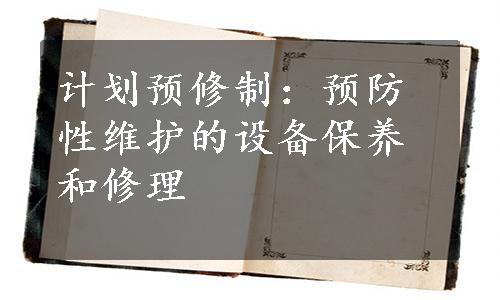 计划预修制：预防
性维护的设备保养
和修理